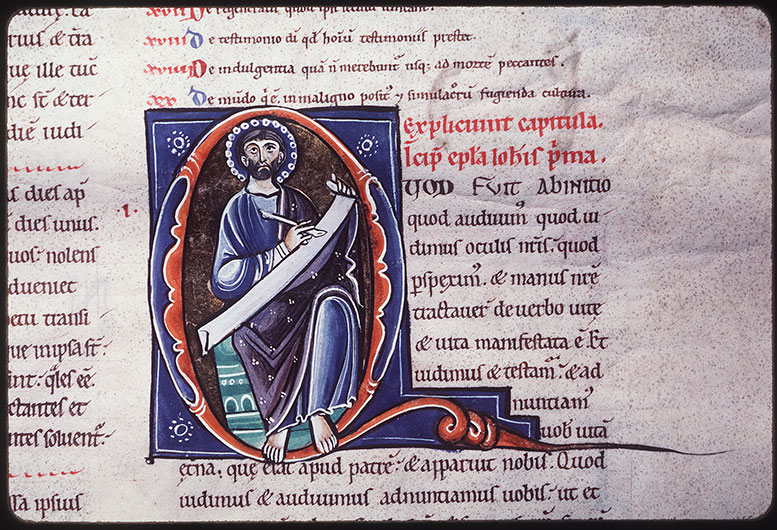 tius & tr̄a
que ille tūc
nc st̄ & ter
diē iudi
es dies ap̄
dies unus.
uos: nolens
dueniet
celi transi
que in ipsa st̄:
int: q̄les eē.
ctantes et
ntes soluent᷑.
ssa ipsius
xviii De testimonio di qd̄ horū testimoniis prestet.
xviiii De indulgentia quā n̄ merebunt᷑ usq; ad mortē peccantes.
xx De mūdo q̄ ē in maligno posit᷒ ⁊ simulacrū fugienda cultura.
Expliciunt capitula.
Incip̄ ep̄la Iohis p̄ma.
.I. QUOD FUIT AB INITIO
quod audiuim᷒ quod ui
dimus oculis nr̄is. quod
ꝑspexim᷒. & manus nr̄ę
tractauer̄ de uerbo uitę
& uita manifestata ē. Et
uidimus & testam᷑. & ad
nuntiam᷒
uob᷒ uitā
ęt̄na. quę erat apud patrē. & apparuit nobis. Quod
uidimus & audiuimus adnuntiamus uobis. ut et